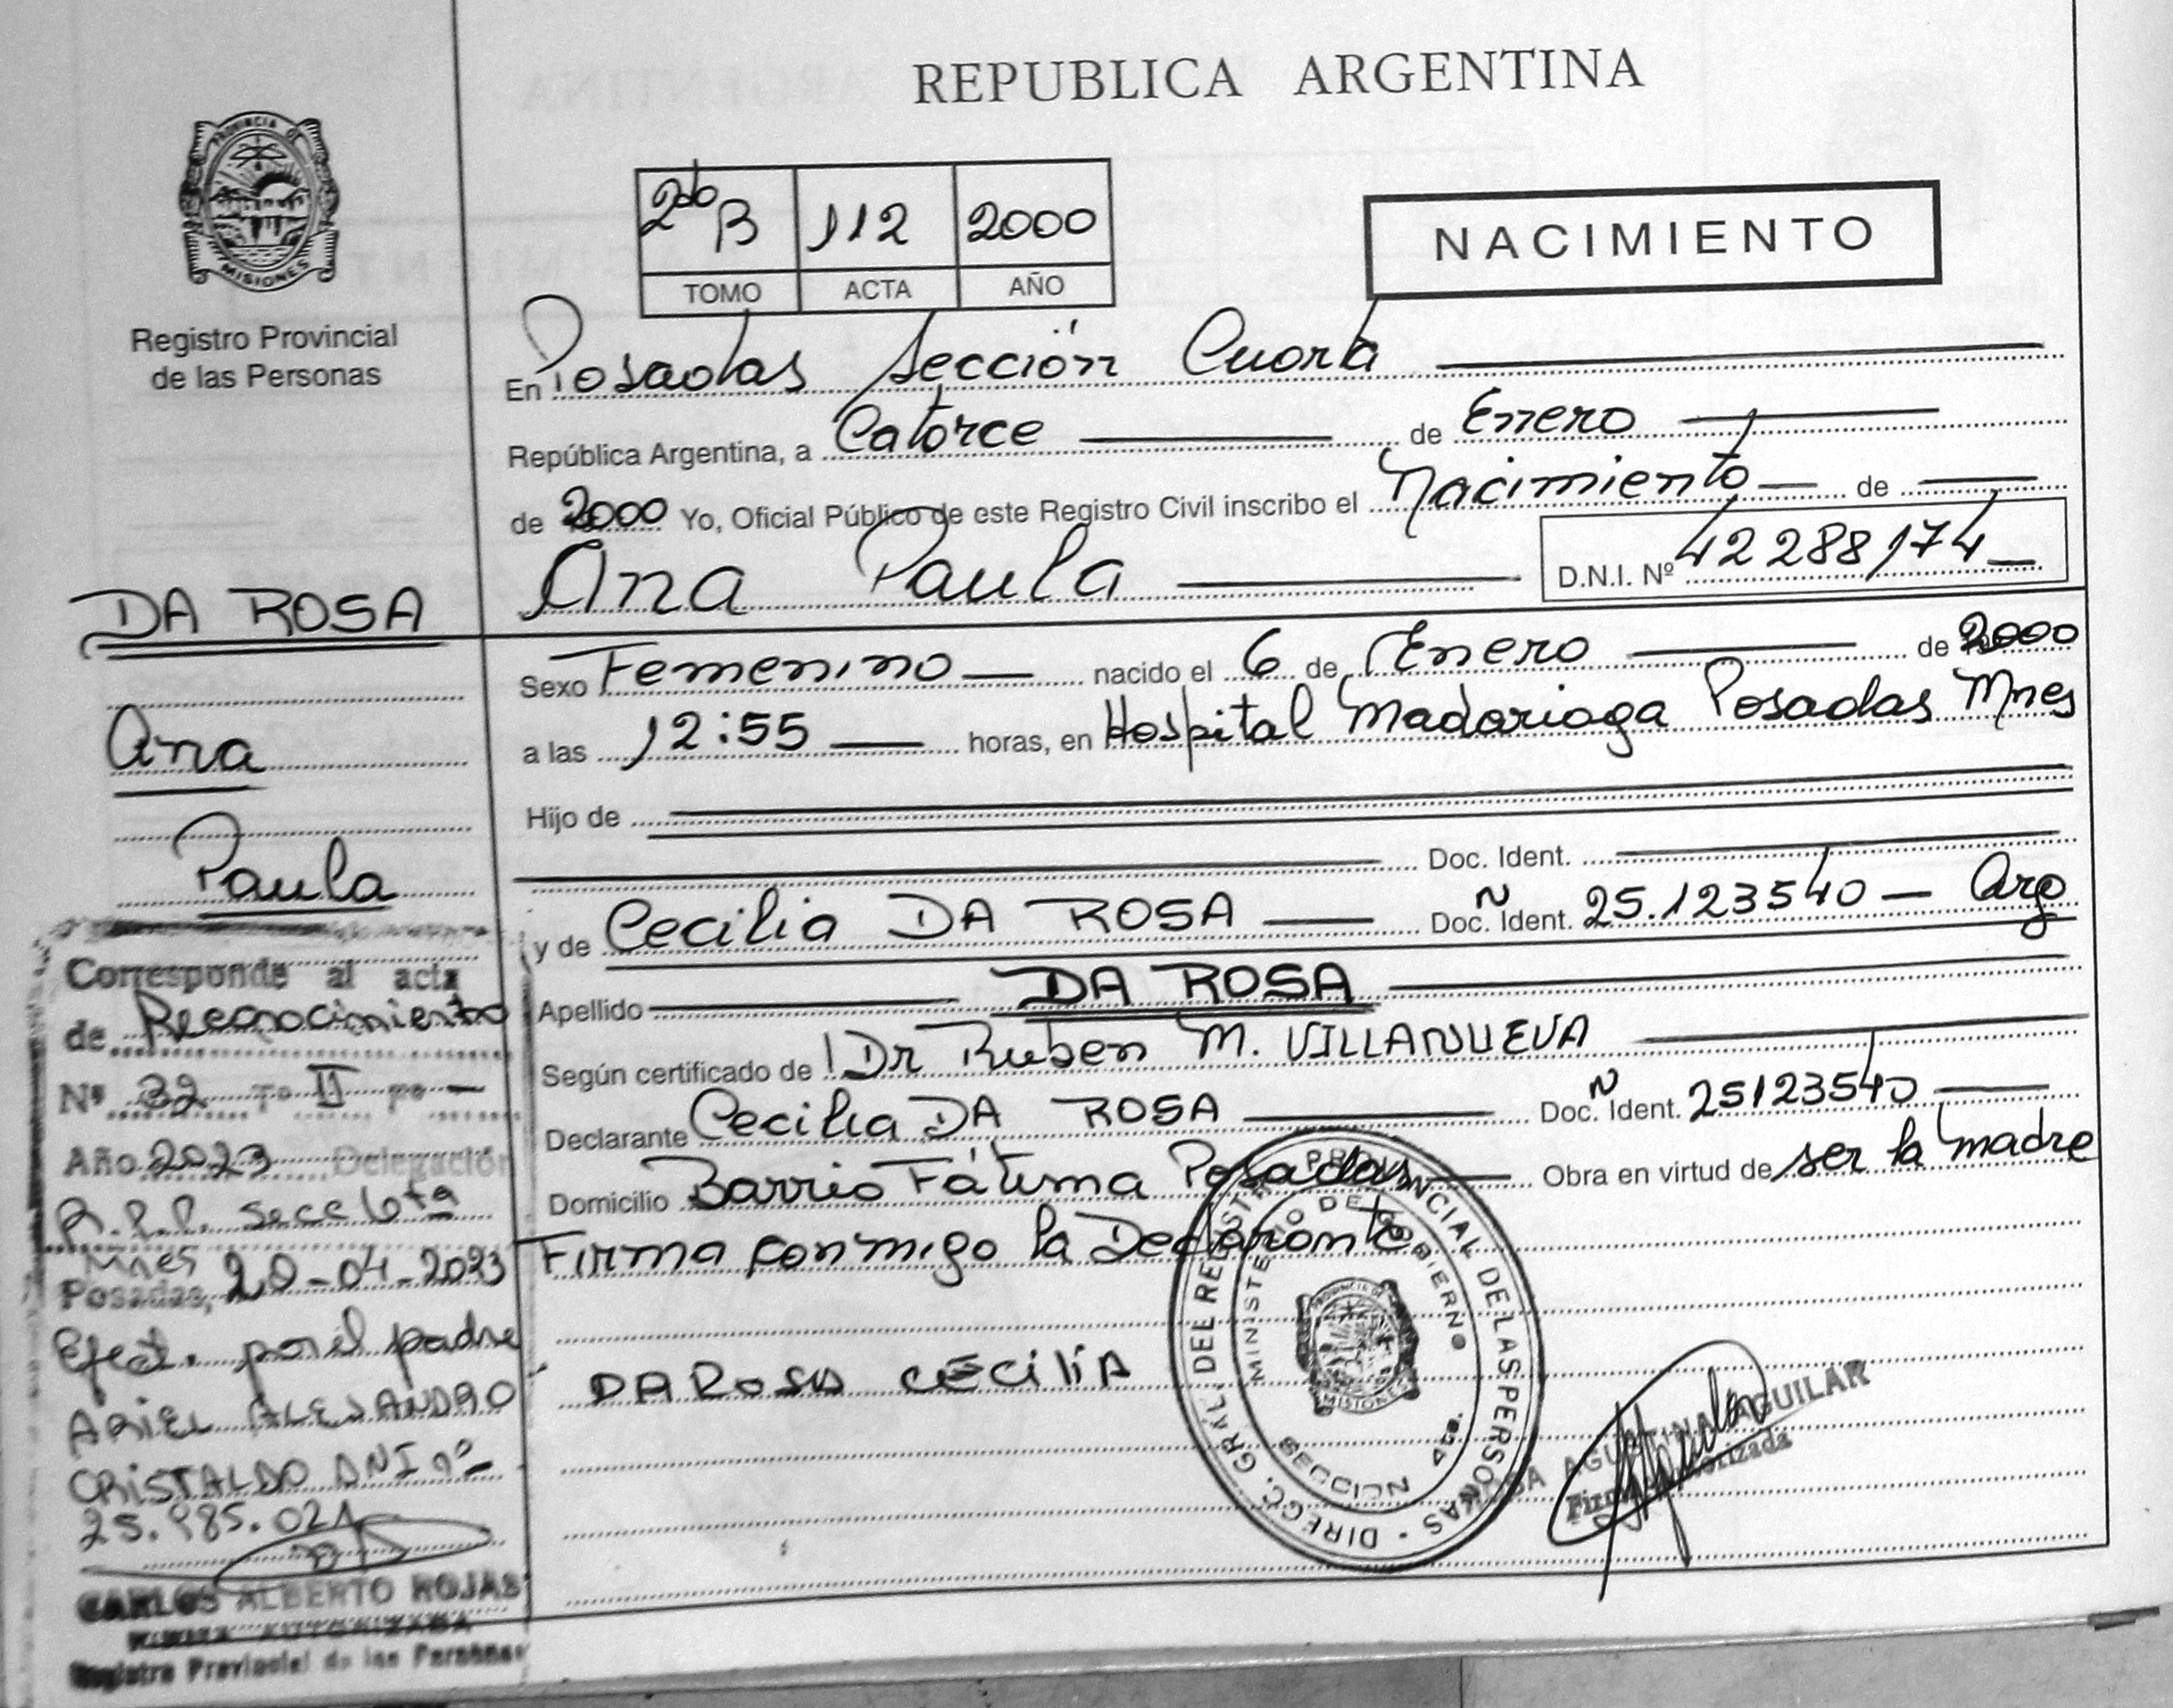 REPUBLICA ARGENTINA
PROVINCIA DE
MISIONES
Registro Provincial
de las Personas
2do B 112 2000
TOMO ACTA AÑO
NACIMIENTO
En Posadas Sección Cuarta
República Argentina, a Catorce de Enero
de 2000 Yo, Oficial Público de este Registro Civil inscribo el Nacimiento de
Ana Paula D.N.I. Nº 42288174
DA ROSA
Ana
Paula
Sexo Femenino nacido el 6 de Enero de 2000
a las 12:55 horas, en Hospital Madariaga Posadas Mnes
Hijo de
Doc. Ident.
y de Cecilia DA ROSA Doc. Ñ Ident. 25.123540 - Arg
Apellido DA ROSA
Según certificado de Dr Ruben M. VILLANUEVA
Declarante Cecilia DA ROSA Doc. Ñ Ident. 25123540
Domicilio Barrio Fátima Posadas Obra en virtud de ser la madre
Firma conmigo la Declarante
DA ROSA CECILIA
DIRECC. GRAL. DEL REGISTRO PROVINCIAL DE LAS PERSONAS
MINISTERIO DE GOBIERNO
SECCION 4ta.
MISIONES
AGUSTINA AGUILAR
Firma Autorizada
Corresponde al acta
de Reconocimiento
Nº 32 Tº II Fº -
Año 2023 Delegación
R.P.P. Secc 6ta
Mnes
Posadas, 20-04-2023
Efect. por el padre
ARIEL ALEJANDRO
CRISTALDO DNI nº
25.985.021
CARLOS ALBERTO ROJAS
FIRMA AUTORIZADA
Registro Provincial de las Personas